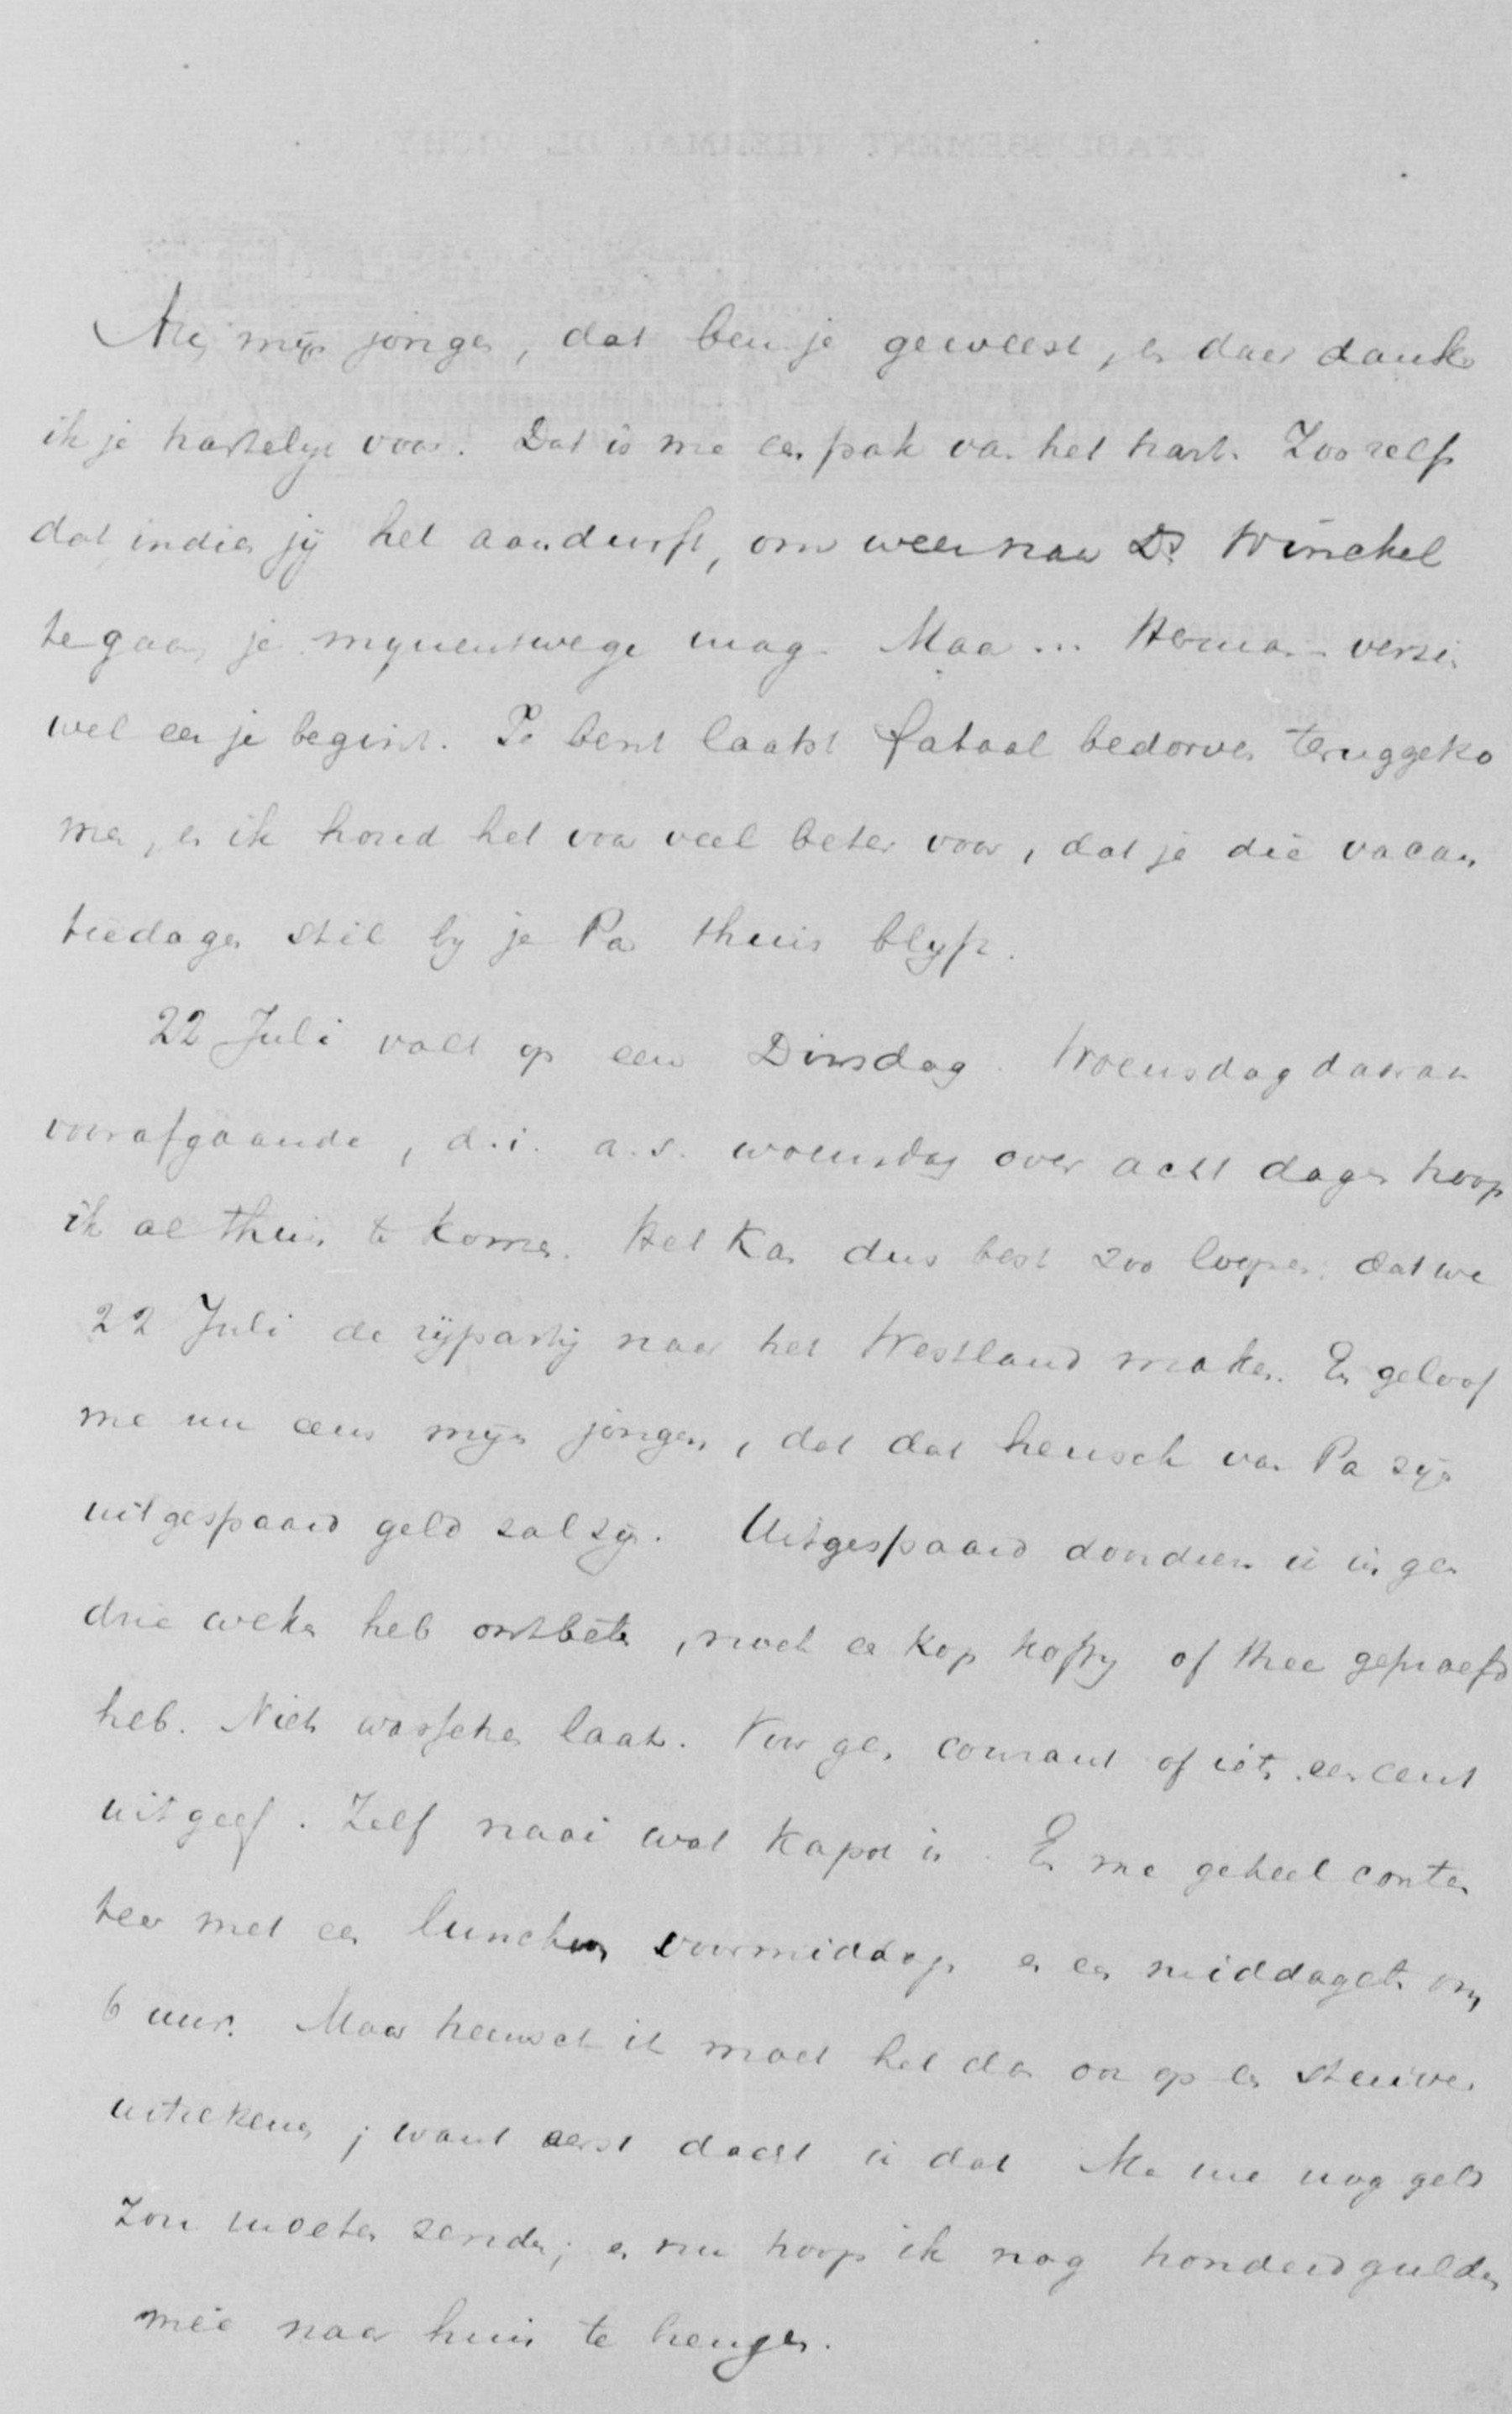 ETABLISSEMENT THERMAL DE VICHY
mijn jongen, dat ben je geweest, en daar dank
ik je hartelijk voor. Dat is me een pak van het hart. Zoo zelfs
dat indien jij het aandurft, om weer naar Ds Winckel
te gaan, je mijnentwege mag. Maar ... Herman - verzin
wel eer je begint. Je bent laatst fataal bedorven teruggeko
men, en ik houd het voor veel beter voor, dat je die vacan
tiedagen stil bij je Pa thuis blijft.
22 Juli valt op een Dinsdag. Woensdag daaraan
voorafgaande, d.i. a.s. woensdag over acht dagen hoop
ik al thuis te komen. Het kan dus best zoo loopen, dat we
22 Juli de rijpartij naar het Westland maken. En geloof
me nu eens mijn jongen, dat dat heusch van Pa zijn
uitgespaard geld zal zijn. Uitgespaard doordien ik in geen
drie weken heb ontbeten, noch een kop koffij of thee geproefd
heb. Niets wasschen laat. Voor geen courant of iets een cent
uitgeef. Zelf naai wat kapot is. En me geheel conten
teer met een lunch voormiddags en een middageten om
6 uur. Maar heusch ik moet het dan ook op een stuiver
uitrekenen; want eerst dacht ik dat Ma me nog geld
zou moeten zenden; en nu hoop ik nog honderd gulden
mee naar huis te brengen.